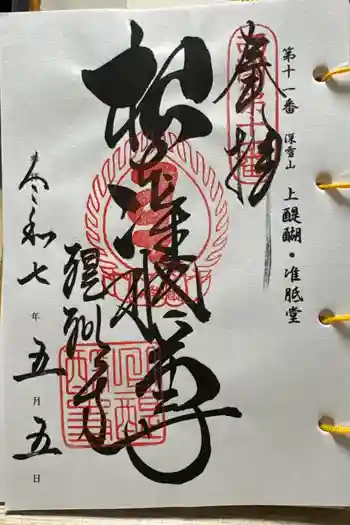 第十一番 深雪山 上醍醐・准胝堂
奉拝
准胝尊
醍醐寺
令和七年五月五日